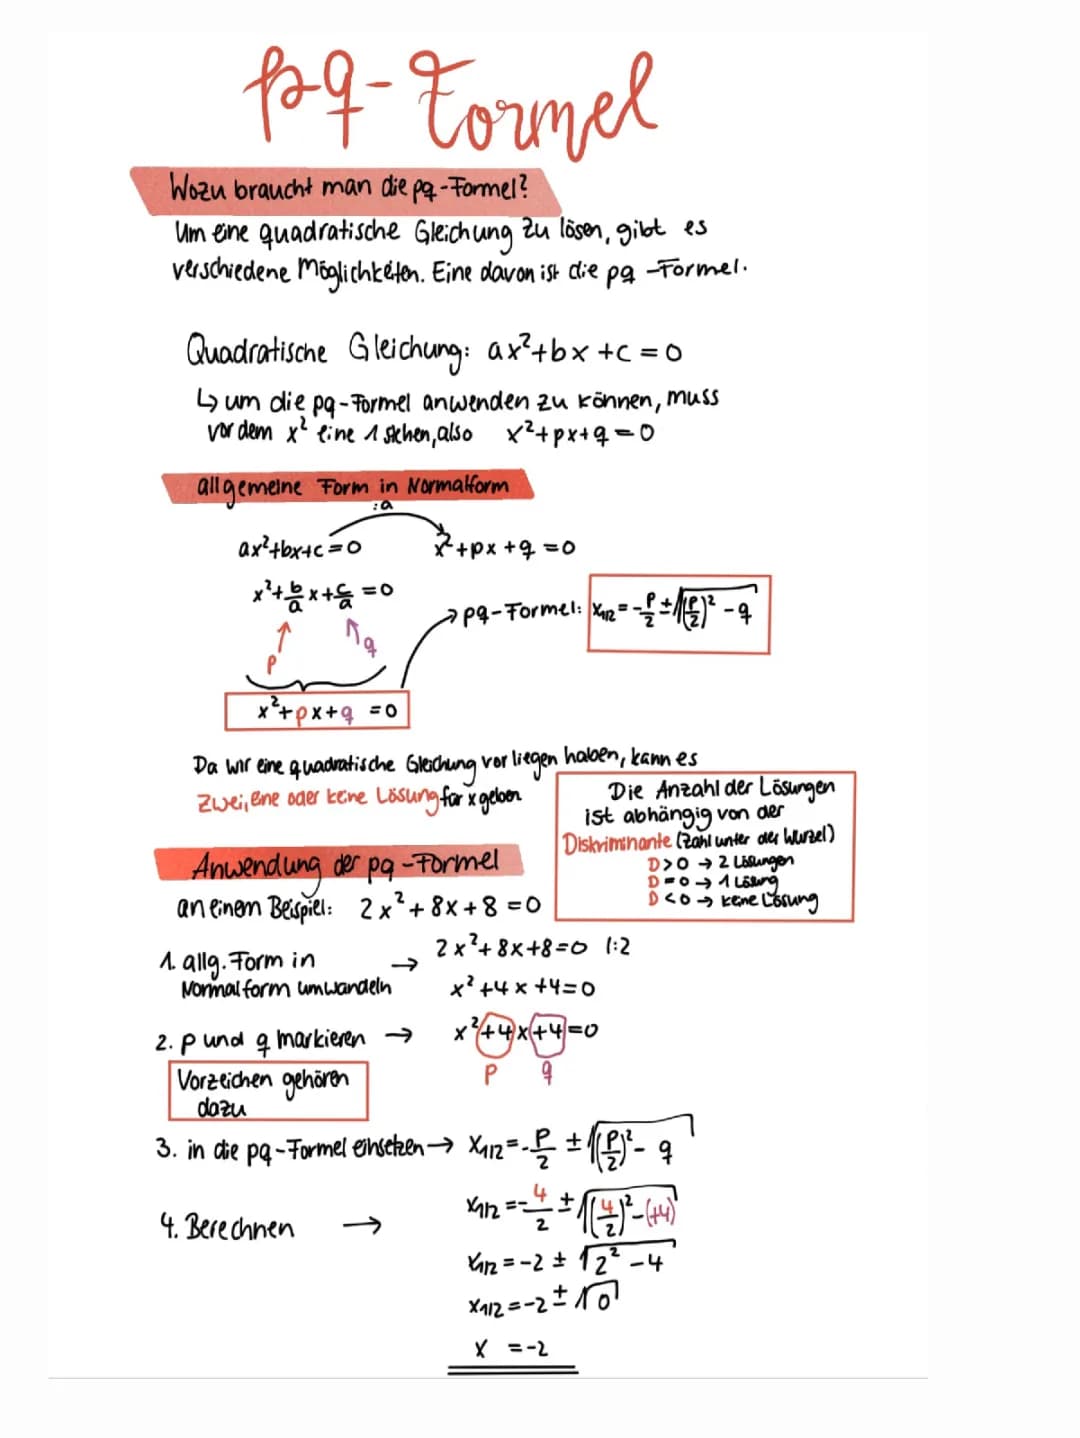 pq-Formel
Wozu braucht man die pq-Formel?
Um eine quadratische Gleichung zu lösen, gibt es
verschiedene Möglichkeiten. Eine davon ist die pq-Formel.
Quadratische Gleichung: ax²+bx+c=0
↳ um die pq-Formel anwenden zu können, muss
vor dem x² eine 1 stehen, also x²+px+q=0
allgemeine Form in Normalform
:a
ax²+bx+c=0 x²+px+q=0
x²+b/a x+c/a=0
→ pq-Formel: x1/2=-p/2±√((p/2)²-q)
p q
x²+px+q=0
Da wir eine quadratische Gleichung vor liegen haben, kann es
zwei, eine oder keine Lösung für x geben
Die Anzahl der Lösungen
ist abhängig von der
Diskriminante (Zahl unter der Wurzel)
D>0 → 2 Lösungen
D=0 → 1 Lösung
D<0 → keine Lösung
Anwendung der pq-Formel
an einem Beispiel: 2x²+8x+8=0
1. allg. Form in → 2x²+8x+8=0 |:2
Normalform umwandeln x²+4x+4=0
2. p und q markieren → x²+4x+4=0
p q
Vorzeichen gehören
dazu
3. in die pq-Formel einsetzen → x1/2=-p/2±√((p/2)²-q)
4. Berechnen → x1/2=-4/2±√((4/2)²-(+4))
x1/2=-2±√(2²-4)
x1/2=-2±√0
x=-2